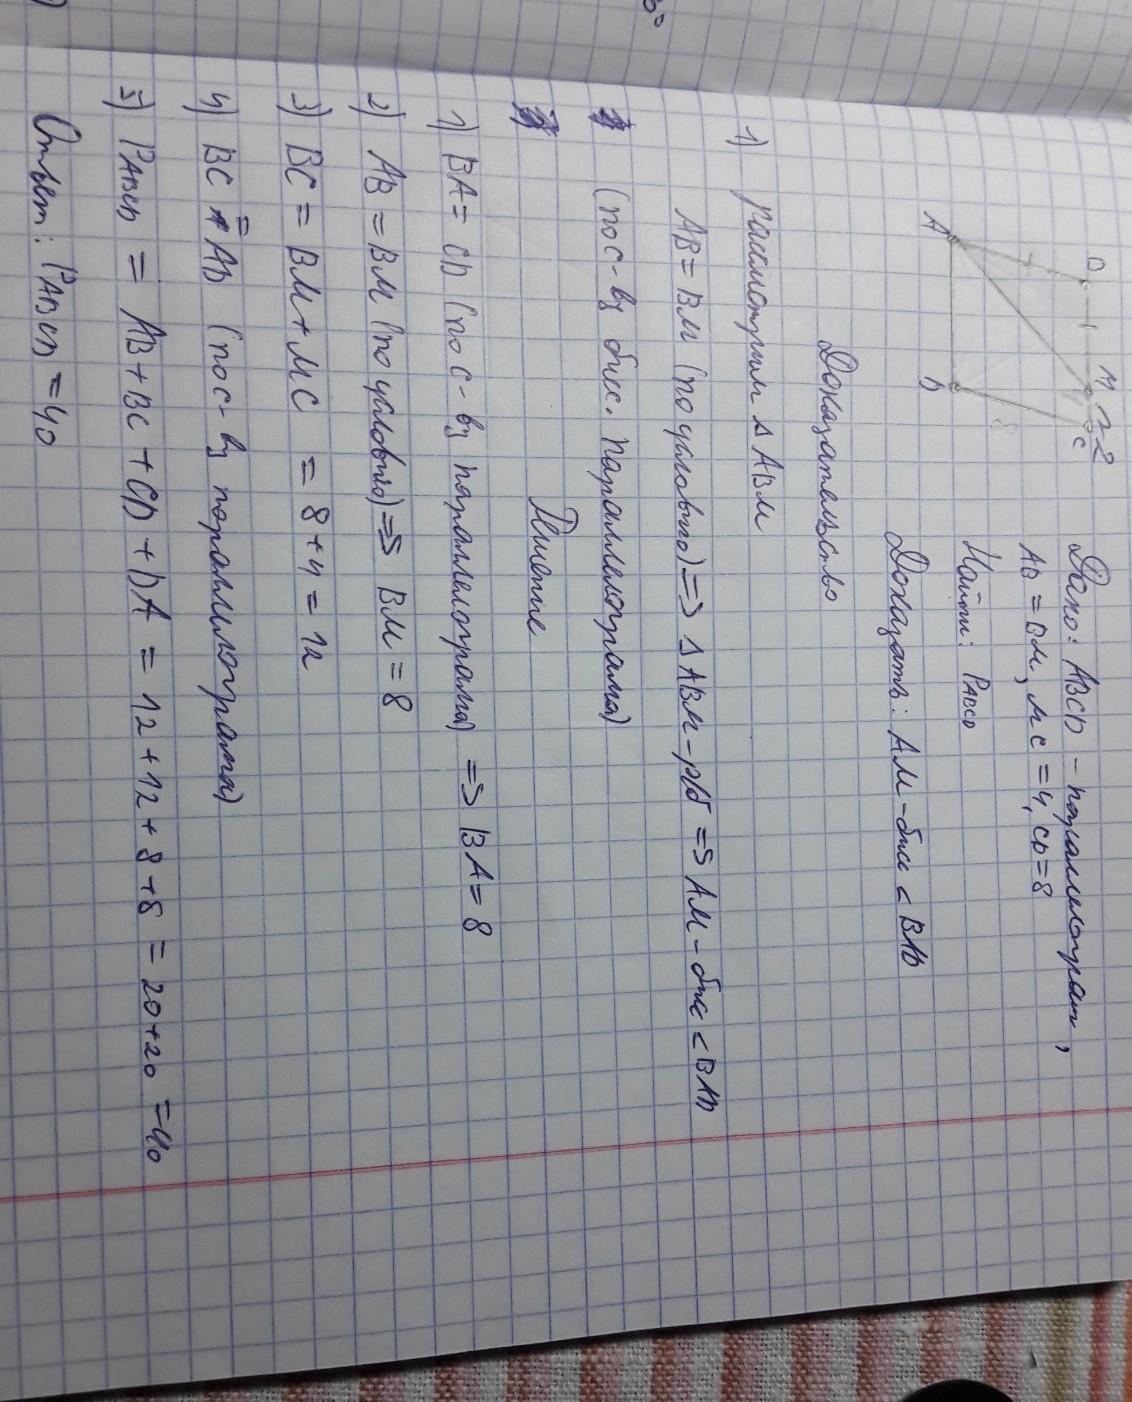 B M C
A D
Дано: ABCD - параллелограм,
AB = BM, MC = 4, CD = 8
Найти: PABCD
Доказать: AM - бис < BAD
Доказательство
1) Рассмотрим Δ ABM
AB = BM (по условию) => Δ ABM - р/б => AM - бис < BAD
(по с-ву бисс. параллелограма)
1) BA = CD (по с-ву параллелограма) => BA = 8
2) AB = BM (по условию) => BM = 8
3) BC = BM + MC = 8 + 4 = 12
4) BC = AD (по с-ву пораллелограма)
5) PABCD = AB + BC + CD + DA = 12 + 12 + 8 + 8 = 20 + 20 = 40
Ответ: PABCD = 40